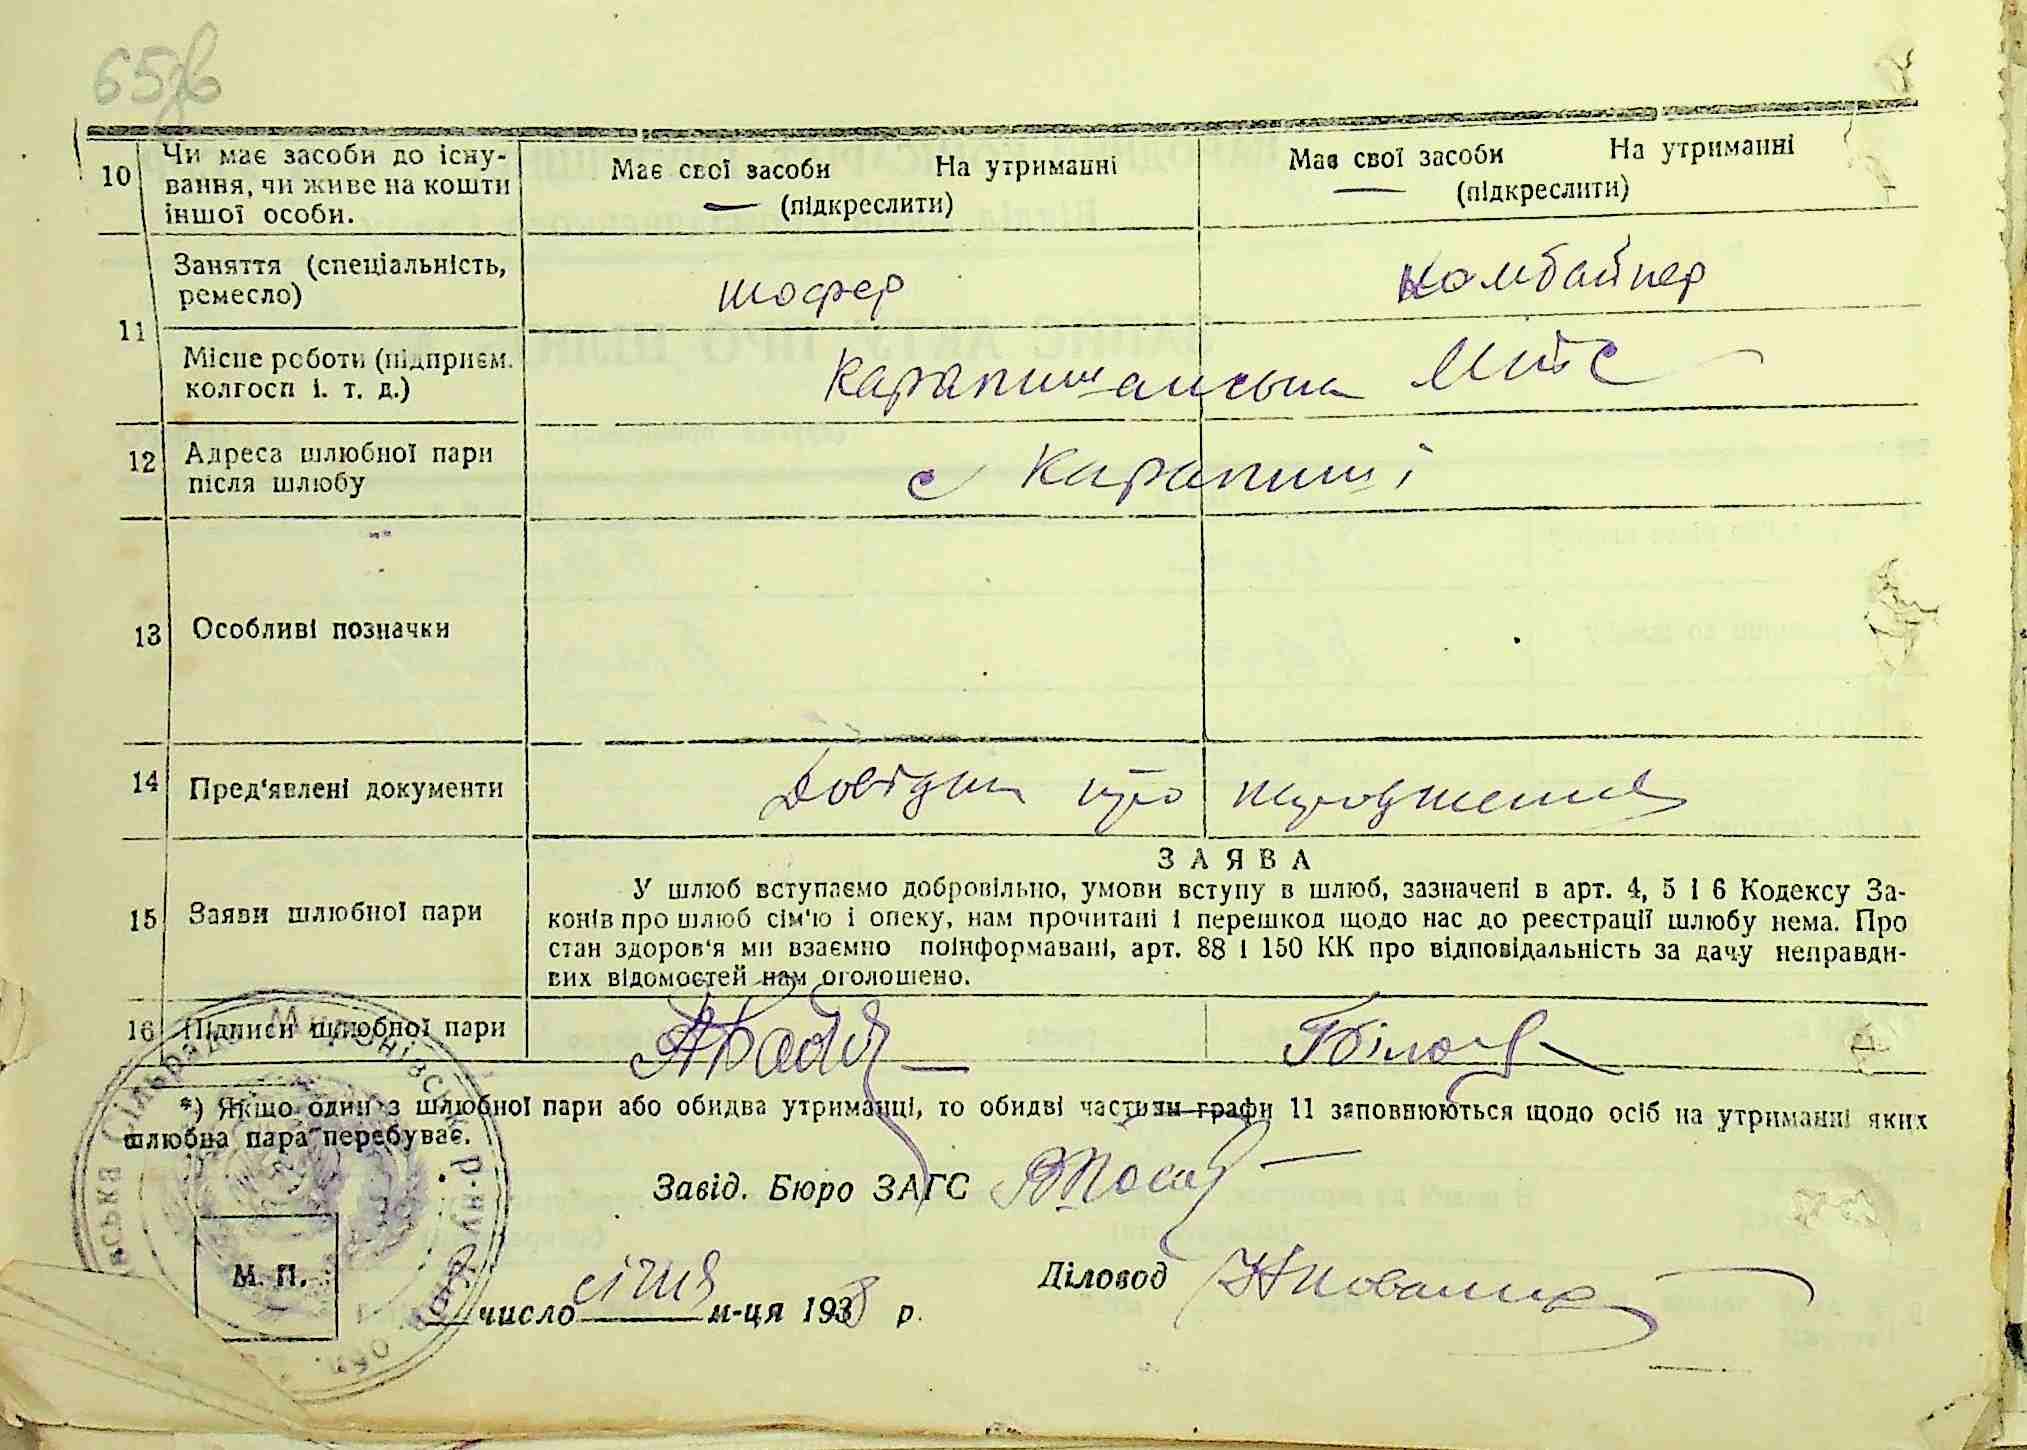 65зв
10 Чи має засоби до існу-
вання, чи живе на кошти
іншої особи.
Має свої засоби На утриманні
(підкреслити)
Має свої засоби На утриманні
(підкреслити)
11 Заняття (спеціальність,
ремесло)
шофер
комбайнер
Місце роботи (підприєм.
колгосп і. т. д.)
Карапишанська МТС
12 Адреса шлюбної пари
після шлюбу
с Карапиші
13 Особливі позначки
14 Пред'явлені документи
Довідки про народження
15 Заяви шлюбної пари
ЗАЯВА
У шлюб вступаємо добровільно, умови вступу в шлюб, зазначені в арт. 4, 5 і 6 Кодексу За-
конів про шлюб сім'ю і опеку, нам прочитані і перешкод щодо нас до реєстрації шлюбу нема. Про
стан здоров'я ми взаємно поінформавані, арт. 88 і 150 КК про відповідальність за дачу неправди-
вих відомостей нам оголошено.
16 Підписи шлюбної пари
*) Якщо один з шлюбної пари або обидва утриманці, то обидві частини графи 11 заповнюються щодо осіб на утриманні яких
шлюбна пара перебуває.
Завід. Бюро ЗАГС
Діловод
М. П.
число січня м-ця 1938 р.
Сільрада Миронівськ. р-ну